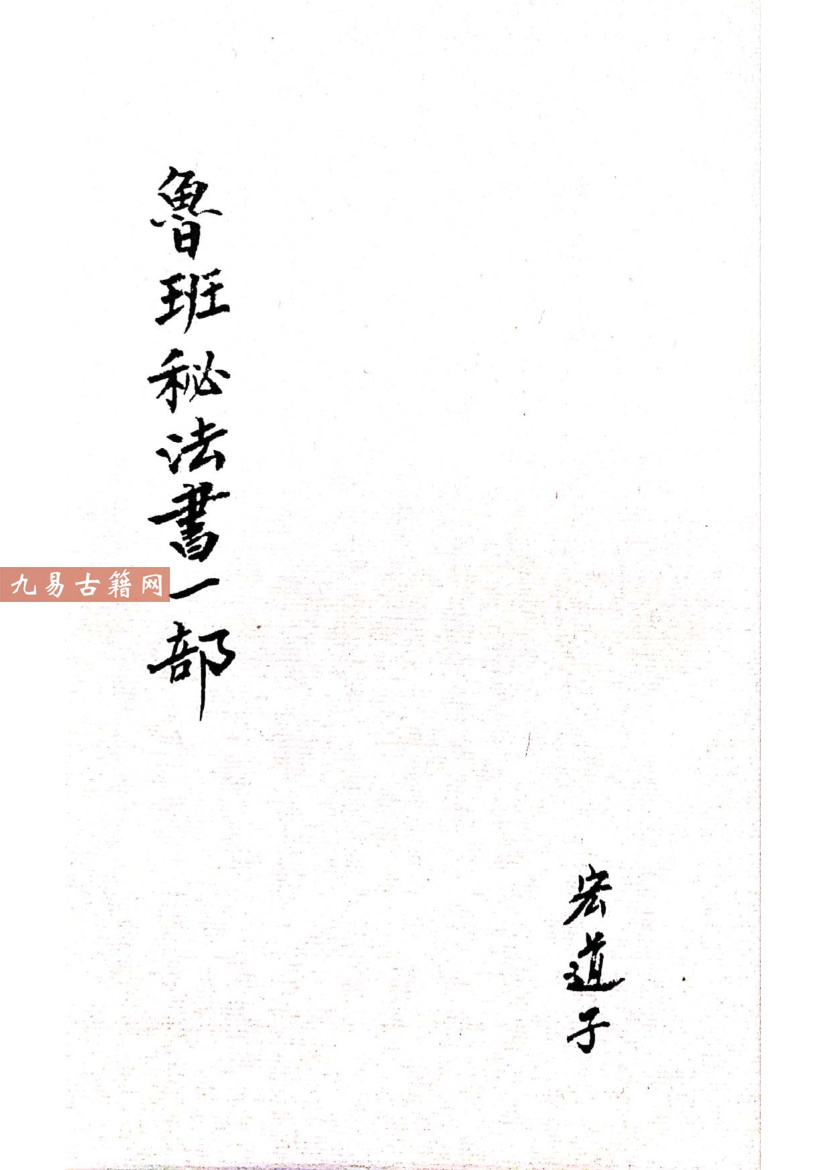 魯班秘法書一部
九易古籍网
宏道子